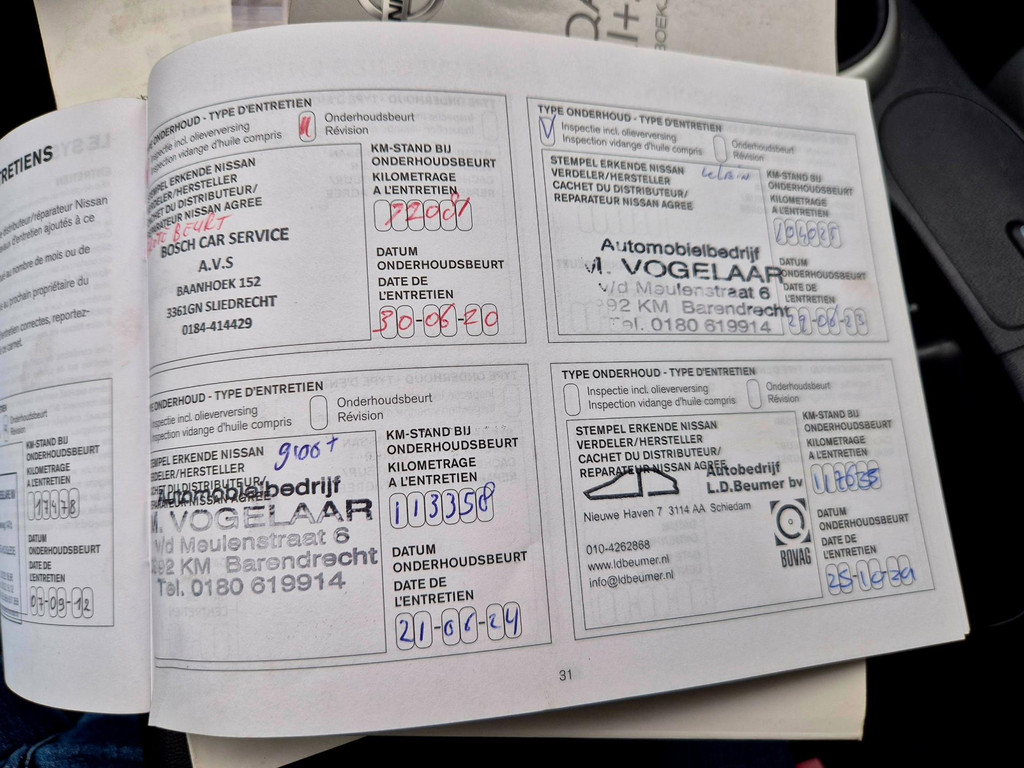 NISSAN
QA
I+2
BOEKJ
ETIENS
LE SY
distributeur/réparateur Nissan
d'entretien ajoutés à ce
au nombre de mois ou de
prochain propriétaire du
entretien correctes, reportez-
ce carnet.
Onderhoudsbeurt
Révision
KM-STAND BIJ
ONDERHOUDSBEURT
KILOMETRAGE
A L'ENTRETIEN
17478
DATUM
ONDERHOUDSBEURT
DATE DE
L'ENTRETIEN
07-09-12
TYPE ONDERHOUD - TYPE D'ENTRETIEN
Inspectie incl. olieverversing
Inspection vidange d'huile compris
Onderhoudsbeurt
Révision
STEMPEL ERKENDE NISSAN
VERDELER/HERSTELLER
CACHET DU DISTRIBUTEUR/
REPARATEUR NISSAN AGREE
BEURT
BOSCH CAR SERVICE
A.V.S
BAANHOEK 152
3361GN SLIEDRECHT
0184-414429
KM-STAND BIJ
ONDERHOUDSBEURT
KILOMETRAGE
A L'ENTRETIEN
72081
DATUM
ONDERHOUDSBEURT
DATE DE
L'ENTRETIEN
30-06-20
TYPE ONDERHOUD - TYPE D'ENTRETIEN
V
Inspectie incl. olieverversing
Inspection vidange d'huile compris
Onderhoudsbeurt
Révision
STEMPEL ERKENDE NISSAN
VERDELER/HERSTELLER
CACHET DU DISTRIBUTEUR/
REPARATEUR NISSAN AGREE
Automobielbedrijf
M. VOGELAAR
v/d Meulenstraat 6
92 KM Barendrecht
Tel. 0180 619914
KM-STAND BIJ
ONDERHOUDSBEURT
KILOMETRAGE
A L'ENTRETIEN
104028
DATUM
ONDERHOUDSBEURT
DATE DE
L'ENTRETIEN
TYPE ONDERHOUD - TYPE D'ENTRETIEN
Inspectie incl. olieverversing
Inspection vidange d'huile compris
Onderhoudsbeurt
Révision
STEMPEL ERKENDE NISSAN
VERDELER/HERSTELLER
CACHET DU DISTRIBUTEUR/
REPARATEUR NISSAN AGREE
groot
Automobielbedrijf
M. VOGELAAR
v/d Meulenstraat 6
92 KM Barendrecht
Tel. 0180 619914
KM-STAND BIJ
ONDERHOUDSBEURT
KILOMETRAGE
A L'ENTRETIEN
113358
DATUM
ONDERHOUDSBEURT
DATE DE
L'ENTRETIEN
21-06-24
TYPE ONDERHOUD - TYPE D'ENTRETIEN
Inspectie incl. olieverversing
Inspection vidange d'huile compris
Onderhoudsbeurt
Révision
STEMPEL ERKENDE NISSAN
VERDELER/HERSTELLER
CACHET DU DISTRIBUTEUR/
REPARATEUR NISSAN AGREE
Autobedrijf
L.D.Beumer bv
Nieuwe Haven 7 3114 AA Schiedam
010-4262868
www.ldbeumer.nl
info@ldbeumer.nl
BOVAG
KM-STAND BIJ
ONDERHOUDSBEURT
KILOMETRAGE
A L'ENTRETIEN
DATUM
ONDERHOUDSBEURT
DATE DE
L'ENTRETIEN
31